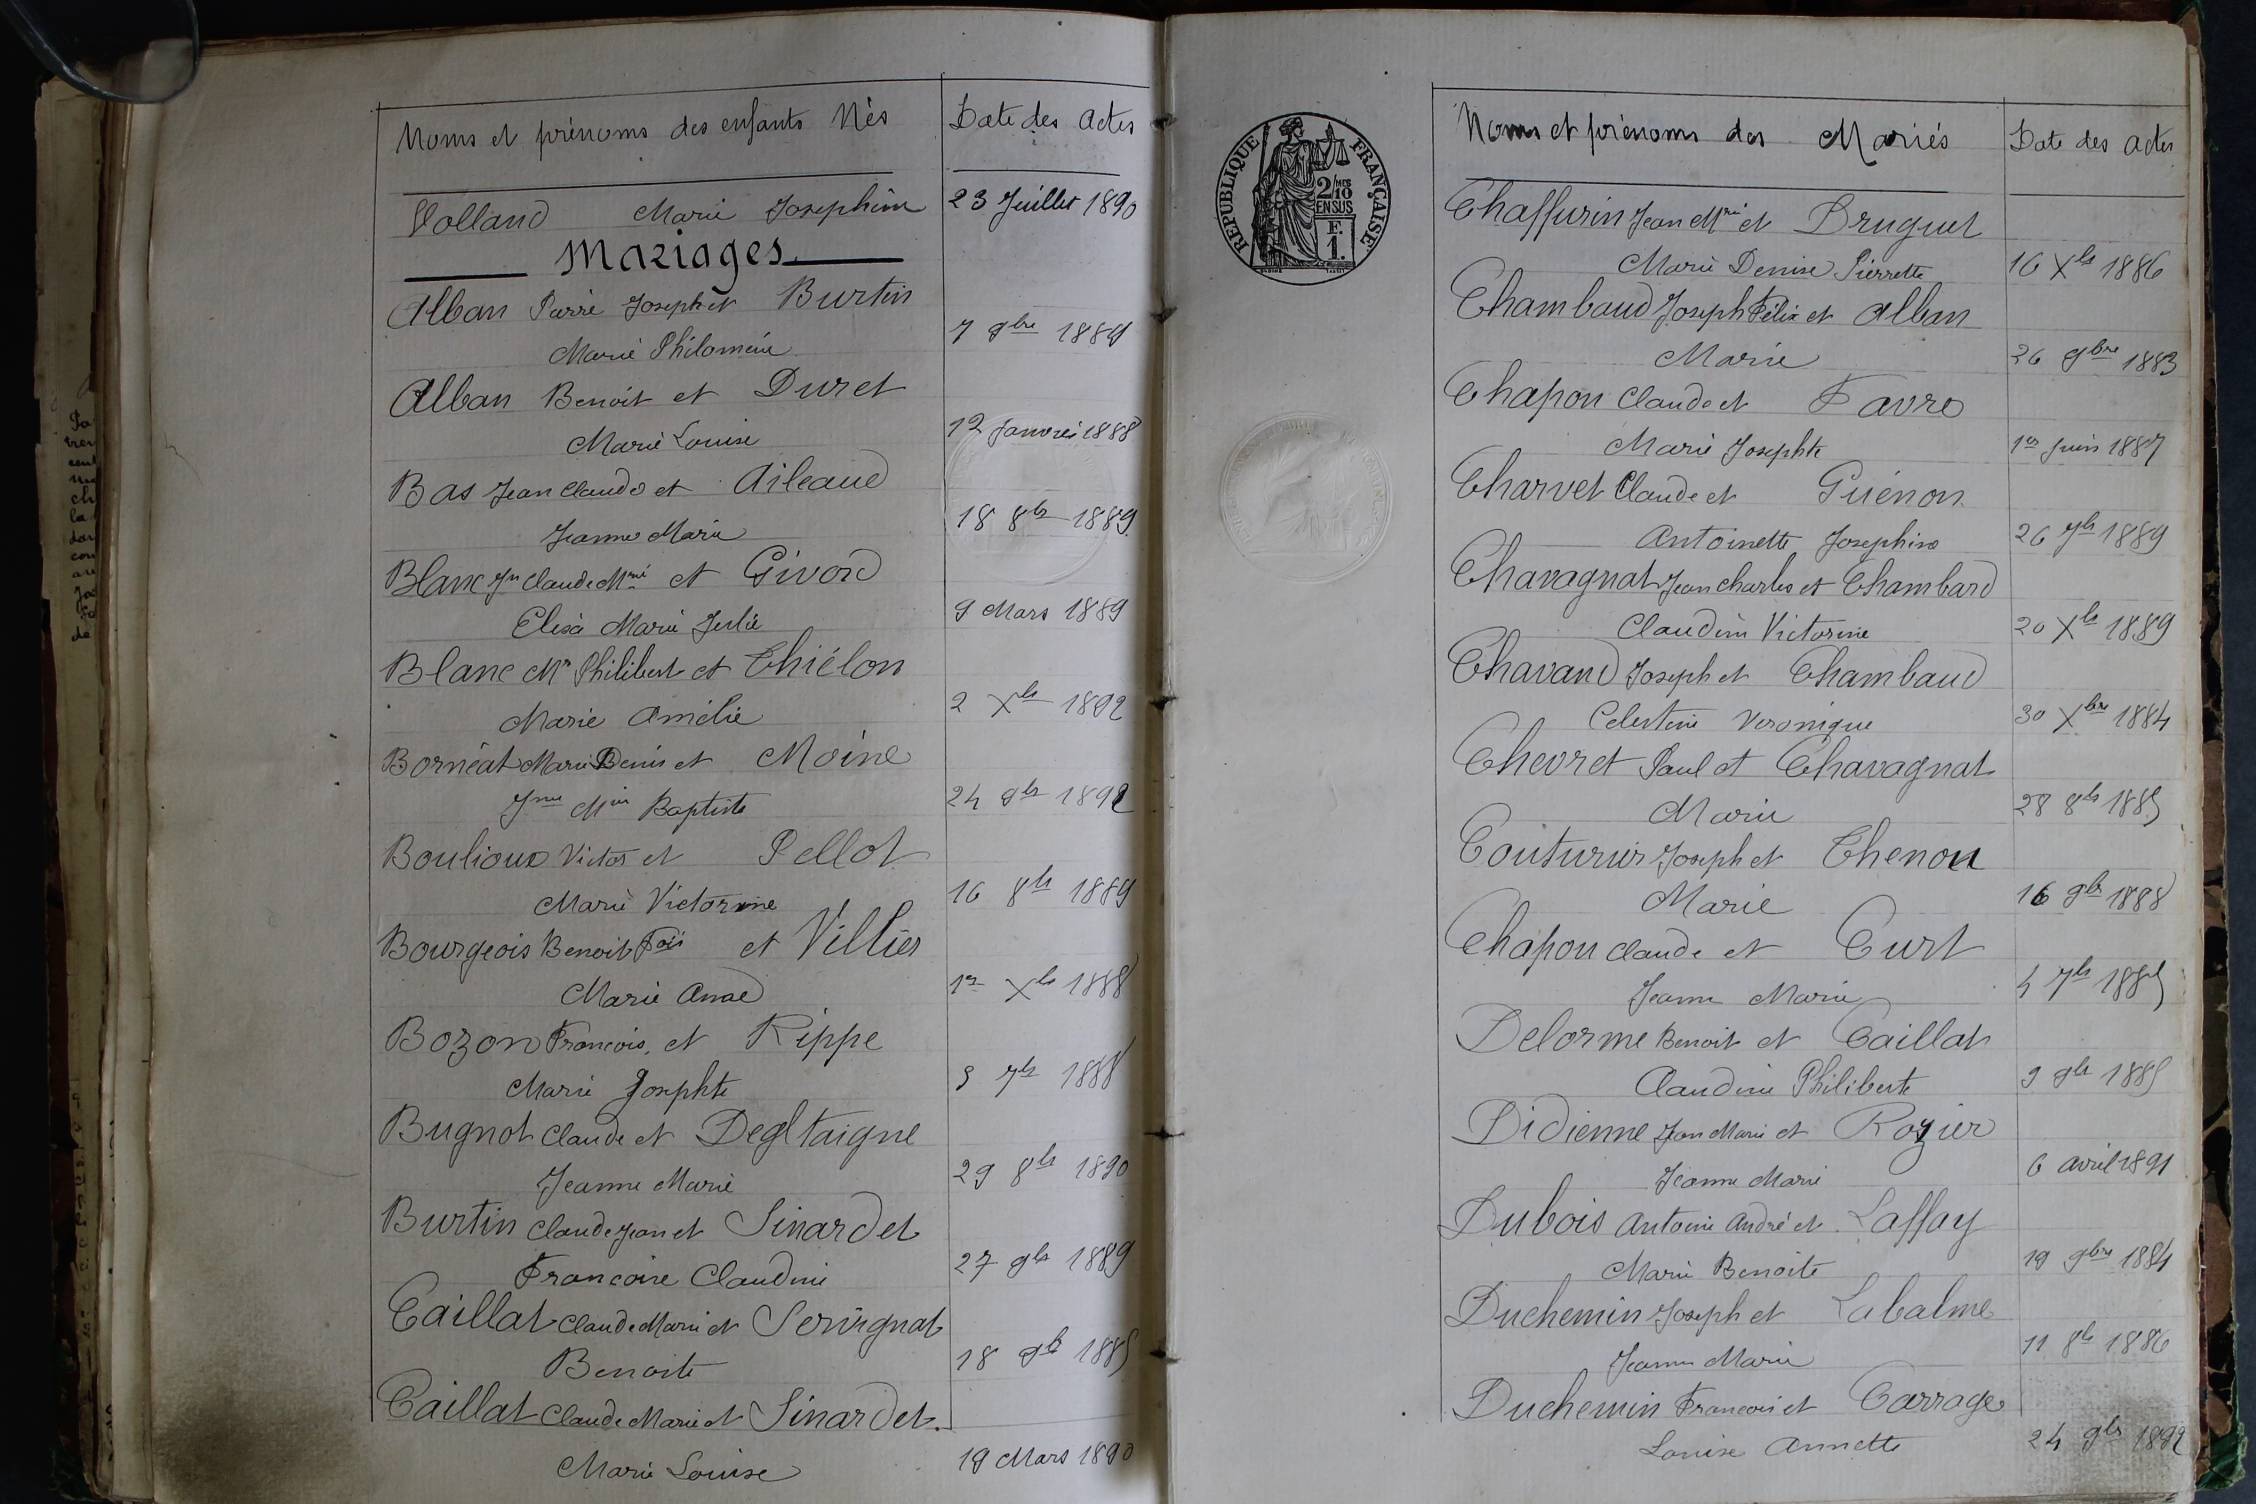 Noms et prénoms des enfants Nés
Date des Actes
Volland Marie Josephine
23 Juillet 1890
Mariages
Alban Pierre Joseph et Burtin
Marie Philomène
7 9bre 1889
Alban Benoit et Duret
Marie Louise
12 Janvier 1888
Bas Jean Claude et Aileaud
Jeanne Marie
18 8bre 1889
Blanc Jn Claude Mrie et Givord
Elisa Marie Julie
9 Mars 1889
Blanc Mie Philibert et Thiélon
Marie Amélie
2 Xbre 1892
Bornéat Marie Denis et Moine
Jnne Mie Baptiste
24 9bre 1892
Boulioud Victor et Pellot
Marie Victorine
16 8bre 1889
Bourgeois Benoit Fois et Villier
Marie
1er Xbre 1888
Bozon François et Rippe
Marie Josephte
7bre 1888
Bugnot Claude et Degltaigne
Jeanne Marie
29 8bre 1890
Burtin Claude Jean et Sinardet
Françoise Claudine
27 9bre 1889
Caillat Claude Marie et Servignat
Benoite
18 9bre 1885
Caillat Claude Marie et Sinardet
Marie Louise
19 Mars 1890
RÉPUBLIQUE FRANÇAISE
2/10 MES
EN SUS
F.
1.
Noms et prénoms des Mariés
Date des Actes
Chaffurin Jean Mrie et Druguet
Marie Denise Pierrette
16 Xbre 1886
Chambaud Joseph Félix et Alban
Marie
26 9bre 1883
Chapon Claude et Favre
Marie Josephte
1er Juin 1887
Charvet Claude et Guénon
Antoinette Josephine
26 7bre 1889
Chavagnat Jean Charles et Chambard
Claudine Victorine
20 Xbre 1889
Chavand Joseph et Chambaud
Celestine Veronique
30 Xbre 1884
Chevret Paul et Chavagnat
Marie
28 8bre 1885
Couturier Joseph et Thenon
Marie
16 9bre 1888
Chapon Claude et Curt
Jeanne Marie
7bre 1885
Delorme Benoit et Caillat
Claudine Philiberte
9 9bre 1885
Didienne Jean Marie et Rozier
Jeanne Marie
6 avril 1891
Dubois Antoine André et Laffay
Marie Benoite
19 9bre 1884
Duchemin Joseph et Labalme
Jeanne Marie
11 8bre 1886
Duchemin François et Carrage
Louise Annette
24 9bre 1892